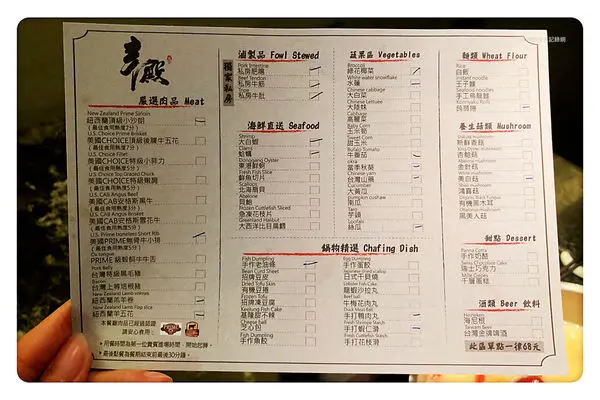 記錄網
嚴選肉品 Meat
New Zealand Prime Sirloin
紐西蘭頂級小沙朗
(最佳食用熟度5分)
U.S. Choice Prime Brisket
美國CHOICE頂級後腰牛五花
(最佳食用熟度7分)
U.S. Choice Filet
美國CHOICE特級小菲力
(最佳食用熟度5分)
美國CHOICE特級嫩肩
U.S. CAB Angus Beef
美國CAB安格斯黑牛
U.S. CAB Angus Brisket
美國CAB安格斯雪花牛
(最佳食用熟度5分)
U.S. Prime boneless Short Rib
美國PRIME無骨牛小排
Ox tongue
PRIME 級鮮餇牛牛舌
Pork Belly
台灣特級黑毛豬
台灣上等培根豬
New Zealand Lamb
紐西蘭羔羊卷
New Zealand Lamb Flap slice
紐西蘭羊五花
本餐廳肉品已經過認證
請安心食用:
用餐時間為第一位貴賓進場時間、開始起算。
最後點餐為餐期結束前最後30分鐘。
獨家私房
滷製品 Fowl Stewed
Pork Intestine
私房肥腸
Beef Tendon
私房牛筋
私房牛肚
海鮮直送 Seafood
Shrimp
大白蝦
Clams
蛤蠣
Dongdang Oyster
東港鮮蚵
Fresh Fish Slice
鮮魚切片
Scallops
北海扇貝
Abalone
貝鮑
Frozen Cuttlefish Sliced
急凍花枝片
Greenland Halibut
大西洋比目扁鱈
蔬果區 Vegetables
Broccoli
綠花椰菜
White water snowflake
水蓮
Chinese cabbage
大白菜
Chinese Lettuce
大陸妹
Cabbage
高麗菜
Baby Corn
玉米筍
Sweet Corn
甜玉米
Bufalo Tomato
牛番茄
okra
當季秋葵
Chinese yam
台灣山藥
Cucumber
大黃瓜
pumpkin cushaw
南瓜
Taro
芋頭
Loofah
絲瓜
鍋物精選 Chafing Dish
Fish Dumpling
手作老油條
Bean Curd Sheet
招牌豆皮
Dried Tofu Skin
有機豆捲
Frozen Tofu
招牌凍豆腐
Keelung Fish Cake
基隆甜不辣
Cheese ball
芝心包
Fish Dumpling
手作魚餃
Egg Dumpling
手作蛋餃
日式干貝燒
Lobster Fish Cake
龍蝦沙拉丸
Beef Ball
牛梅花肉丸
Duck Meat Ball
手打鴨肉丸
Fresh Shrimp Starch
手打蝦仁滑
Frozen Cuttlefish Starch
手打花枝滑
麵類 Wheat Flour
Rice
白飯
Instant noodle
王子麵
Seafood noodles
手工烏龍麵
Konnyaku Rolls
蒟蒻捲
養生菇類 Mushroom
Delicious mushroom
新鮮香菇
King Oyster mushroom
杏鮑菇
金針菇
White mushroom
美白菇
Shimeji mushroom
鴻喜菇
有機黑木耳
風美人菇
甜點 Dessert
Panna Cotta
手作奶酪
Swiss Chocolate Cake
瑞士巧克力
千層蛋糕
酒類 Beer 飲料
Heineken
海尼根
Taiwan Beer
台灣金牌啤酒
此區單點一律68元